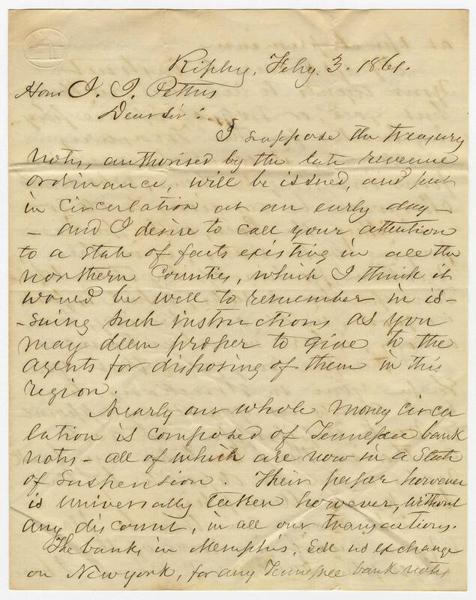 Ripley, Feby. 3. 1861.
Hon J. J. Pettus
Dear Sir:
I suppose the treasury
notes, authorised by the late revenue
ordinance, will be issued, and put
in circulation at an early day -
- and I desire to call your attention
to a State of facts existing in all the
northern Counties, which I think it
would be well to remember in is-
-suing such instructions as you
may deem proper to give to the
agents for disposing of them in this
region.
Nearly our whole money circu
lation is composed of Tennessee bank
notes - all of which are now in a State
of suspension. Their paper however
is universally taken however, without
any discount, in all our transactions.
The banks in Memphis, sell us exchange
on New York, for any Tennessee bank notes